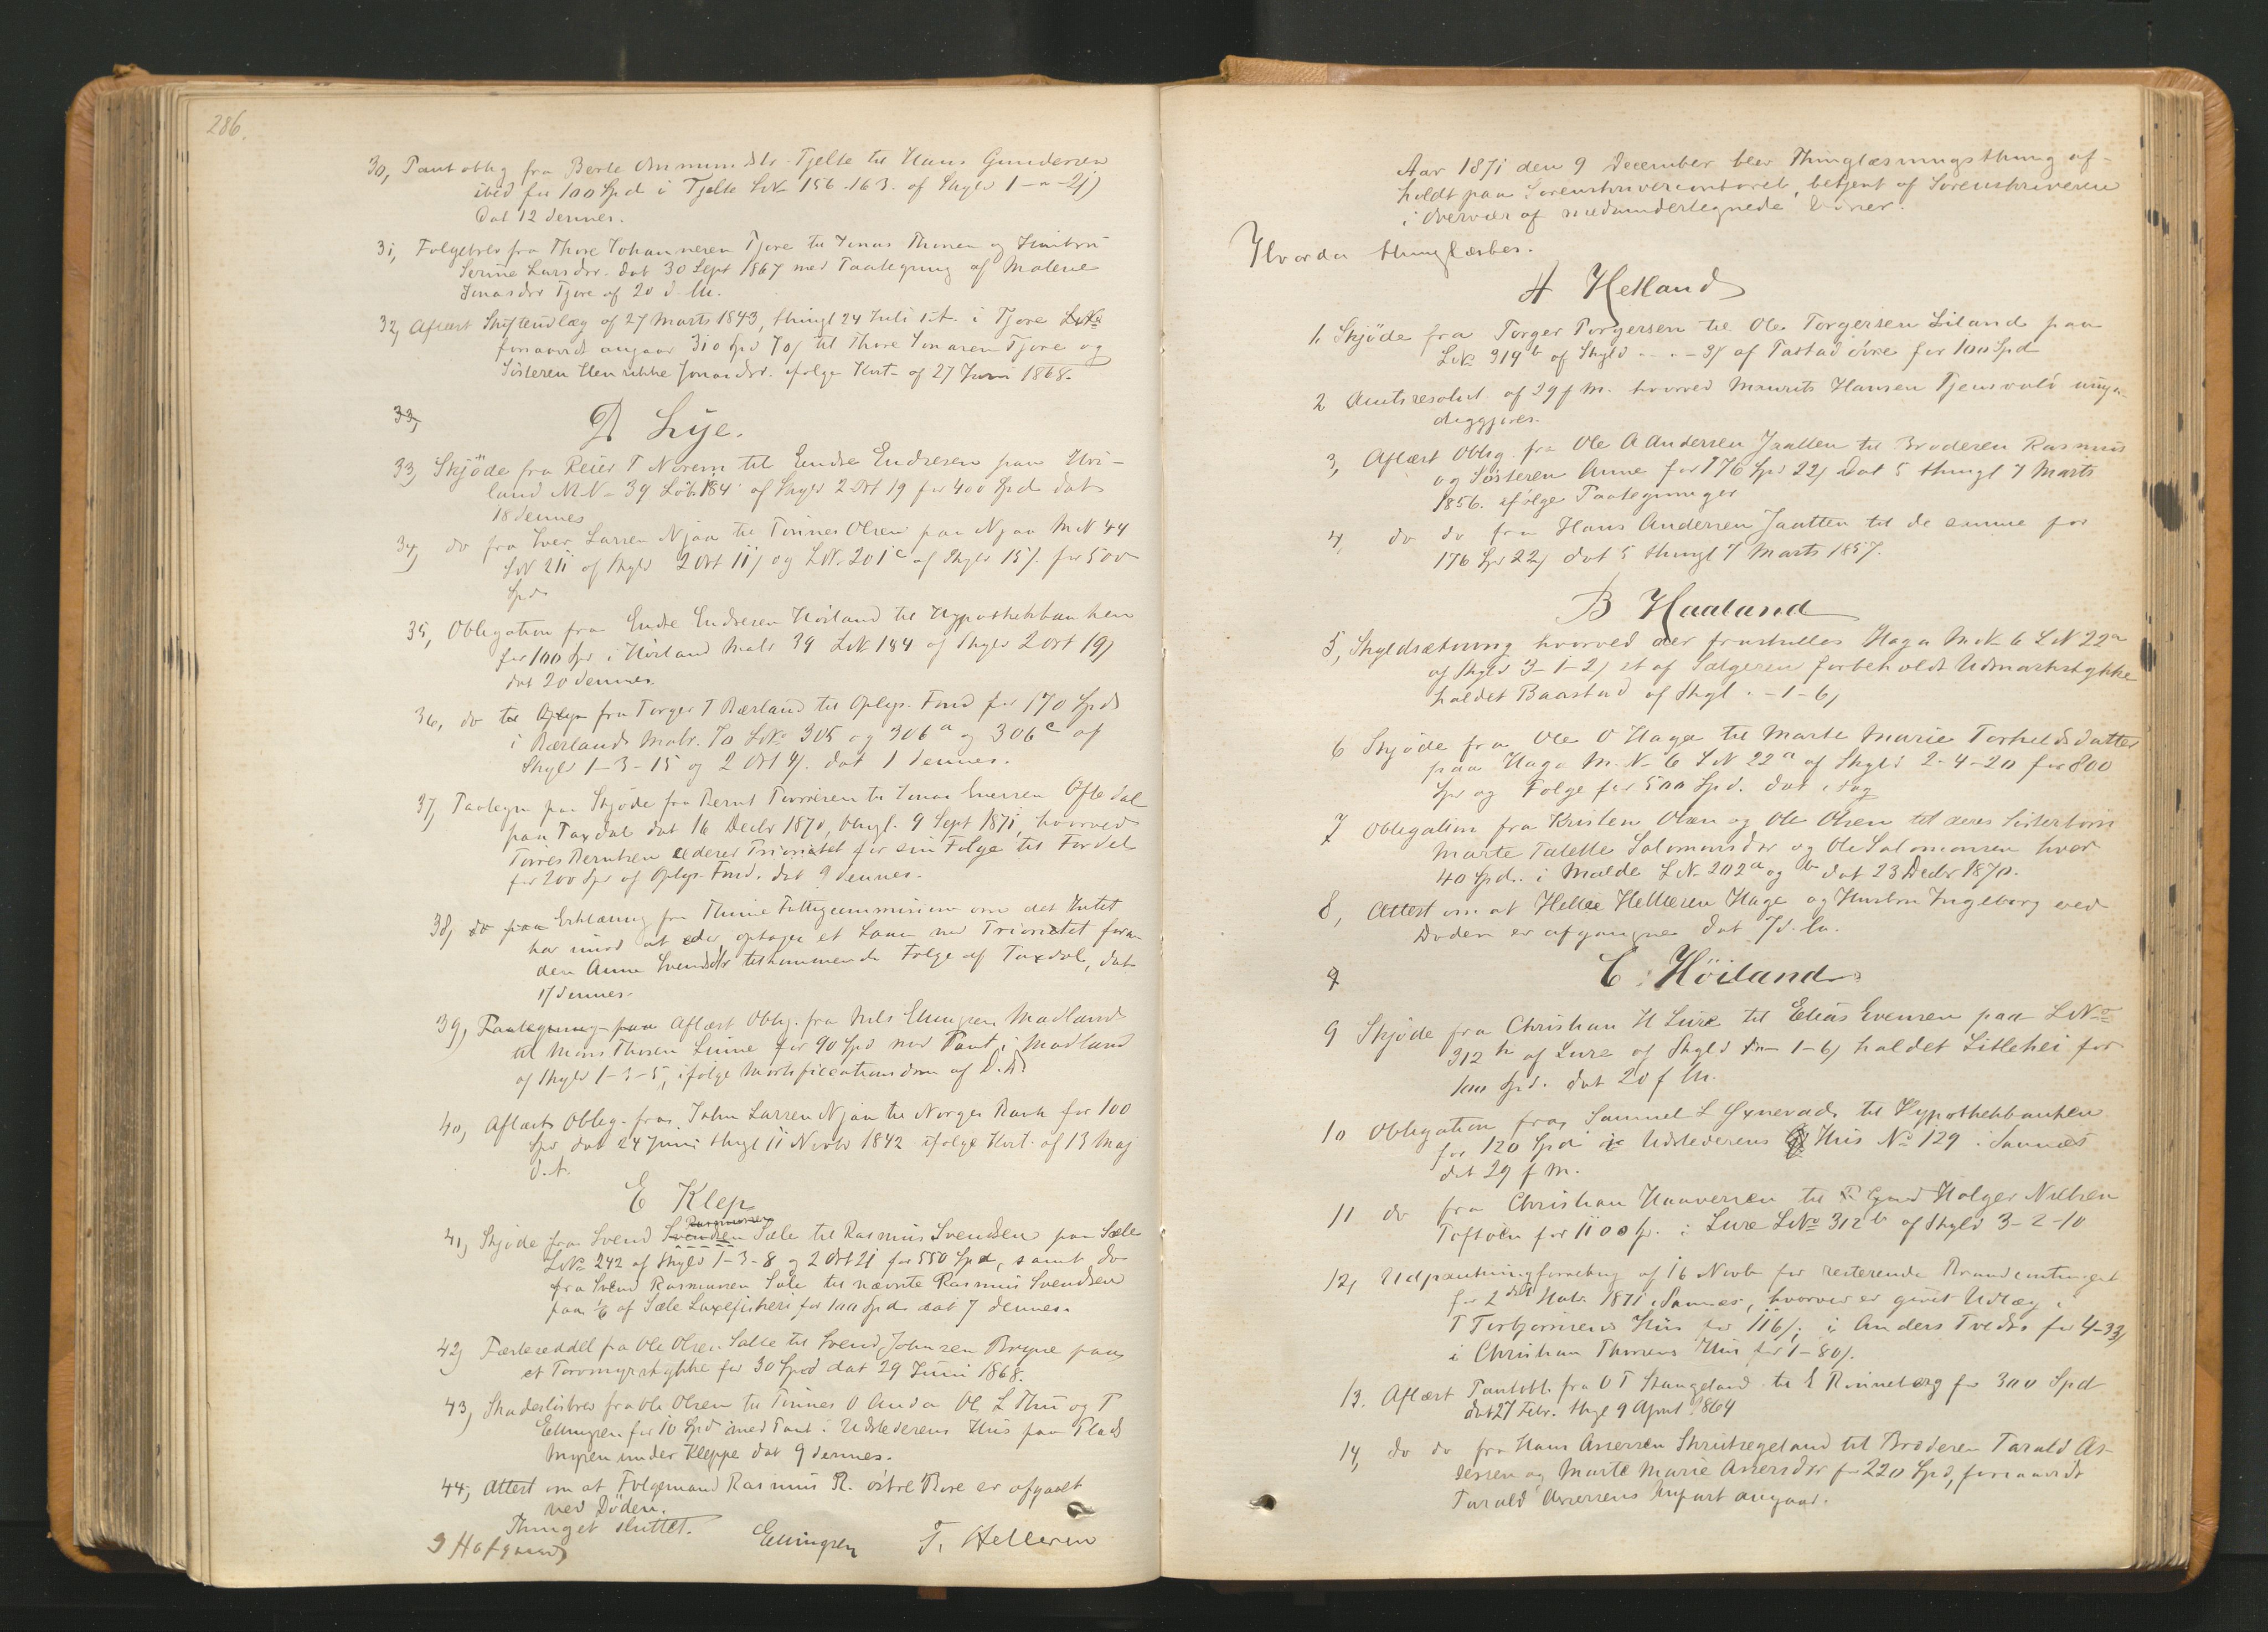 286.
30, Pantoblig fra Berte Asmundsdr. Tjelte til Hans Gundersen
ibid for 100 Spd i Tjelte LNo 156. 163. af Skyld 1 - " - 21)
Dat 12 dennes.
31, Følgebrev fra Thore Johannesen Tjore til Jonas Thorsen og Hustru
Serine Larsdr. dat 30 Sept 1867 med Paategning af Malene
Jonasdr Tjore af 20 d. M.
32, Aflæst Skifteudlæg af 27 Marts 1843, thingl 24 Juli s.A. i Tjore LNo
forsaavidt angaar 310 Spd 70 til Thore Jonasen Tjore og
Søsteren Henrikke Jonasdr. ifølge Kvit. af 27 Juni 1868.
33,
D Lye.
33, Skjøde fra Reier T Norem til Endre Endresen paa Høi-
land M.No 39 Løb. 184 af Skyld 2 Ort 19 for 400 Spd dat
18 dennes
34, do fra Iver Larsen Njaa til Tønnes Olsen paa Njaa M.N 44
LN 211 af Skyld 2 Ort 11) og LNo 201c af Skyld 15/. for 500
Spd
35, Obligation fra Endre Endresen Høiland til Hypothekbanken
for 100 Spd i Høiland Matr 39 LNo 184 af Skyld 2 Ort 19)
dat 20 dennes.
36, do til Oplys fra Torger T Bærland til Oplys. Fond for 170 Spd
i Bærland Matr. 70 LNo 305 og 306a og 306c af
Skyld 1-3-15 og 2 Ort 4/. dat 1 dennes.
37, Paategn paa Skjøde fra Bernt Tørresen til Jonas Evensen Oftedal
paa Taxdal dat 16 Decbr 1870, thingl. 9 Sept 1871, hvorved
Tørres Berntsen viger Prioritet for sin Følge til Fordel
for 200 Spd af Oplys. Fond. dat 9 dennes.
38, do paa Erklæring fra Thime Fattigcommission om det Intet
har imod at der optages et Laan med Prioritet foran
den Anne Svendsdr tilkommende Følge af Taxdal, dat
17 dennes.
39, Paategning paa Aflæst Oblig. fra Nils Ellingsen Madland
til Mons Thorsen Linne for 90 Spd med Pant i Madland
af Skyld 1-3-5, ifølge Mortificationsdom af D.D.
40, Aflæst Oblig. fra John Larsen Njaa til Norges Bank for 100
Spd dat 24 Juni thingl 11 Novbr 1842 ifølge Kvit. af 13 Maj
d.A.
E Klep
Rasmussen
41, Skjøde fra Svend Svendsen Sæle til Rasmus Svendsen paa Sæle
LNo 242 af Skyld 1-3-8 og 2 Ort 21 for 550 Spd, samt do
fra Svend Rasmussen Sæle til nævnte Rasmus Svendsen
paa 1/6 af Sæle Laxefiskeri for 100 Spd dat 7 dennes.
42, Fæsteseddel fra Ole Olsen Salte til Svend Johnsen Bryne paa
et Torvmyrstykke for 30 Spd dat 29 Juni 1868.
43, Skadesløsbrev fra Ole Olsen til Tønnes O Anda Ole L Thu og T
Ellingsen for 10 Spd med Pant i Udstederens Hus paa Plads
Myren under Kleppe dat 9 dennes.
44, Attest om at Følgemand Rasmus R. østre Bore er afgaaet
ved Døden.
Thinget sluttet.
Hofgaard Ellingsen T. Helleren
Aar 1871 den 9 December blev Thinglæsningsthing af-
holdt paa Sorenskrivercontoret, betjent af Sorenskriveren
i Overvær af medundertegnede Vidner.
Hvorda thinglæstes.
A Hetland
1. Skjøde fra Torger Torgersen til Ole Torgersen Liland paa
LNo 319b af Skyld " - " - 3/ af Tastad øvre for 100 Spd
2 Amtsresolut. af 29 f M. hvorved Maurits Hansen Tjensvold umyn-
diggjøres.
3, Aflæst Oblig. fra Ole A Andersen Jaatten til Broderen Rasmus
og Søsteren Anne for 176 Spd 22) Dat 5 thingl 7 Marts
1856. ifølge Paategninger
4, do do fra Hans Andersen Jaatten til de samme for
176 Spd 22) dat 5 thingl 7 Marts 1857.
B Haaland
5, Skyldsætning hvorved der fraskilles Haga M.No 6 LN 22a
af Skyld 3-1-2) et af Sælgeren forbeholdt Udmarkstykke
kaldet Baarstad af Skyl. " - 1 - 6)
6 Skjøde fra Ole O Haga til Marte Marie Torkeldsdatter
paa Haga M.No 6 LN 22a af Skyld 2-4-20 for 800
Spd og Følge for 500 Spd. dat i Dag
7 Obligation fra Kristen Olsen og Ole Olsen til deres Søsterbørn
Marte Talette Salomonsdr og Ole Salomonsen hver
40 Spd. i Malde LNo 202a og b dat 23 Decbr 1870.
8, Attest om at Helle Hellesen Hage og Hustru Ingeborg ved
Døden er afgangne dat 7 d. M.
9
C. Höiland
9 Skjøde fra Christian H Lure til Elias Evensen paa LNo
312h af Lure af Skyld " - 1 - 6) kaldet Lillehei for
100 Spd. dat 20 f M.
10 Obligation fra Samuel L Øxnevad til Hypothekbanken
for 120 Spd i Udstederens Hus No 129 i Sannæs
dat 29 f M.
11 do fra Christian Haaversen til Holger Nielsen
Toftøen for 1100 Sp. i Lure LNo 312b af Skyld 3-2-10
12, Udpantningsforretning af 16 Novb for resterende Brandcontingent
for 2det Halv. 1871 i Sannæs, hvorved er givet Udlæg i
T Torbjørnsens Hus for 116/; i Anders Tvedts for 4-33,
i Christian Thorsens Hus for 1-80/.
13. Aflæst Pantobl. fra O T Stangeland til E Rønneberg for 300 Spd
dat 27 Febr. thgl 9 April 1864
14, do do fra Hans Assersen Skrudsegeland til Broderen Tarald As-
sersen og Marte Marie Assersdr for 220 Spd, forsaavidt
Tarald Assersens Anpart angaar.